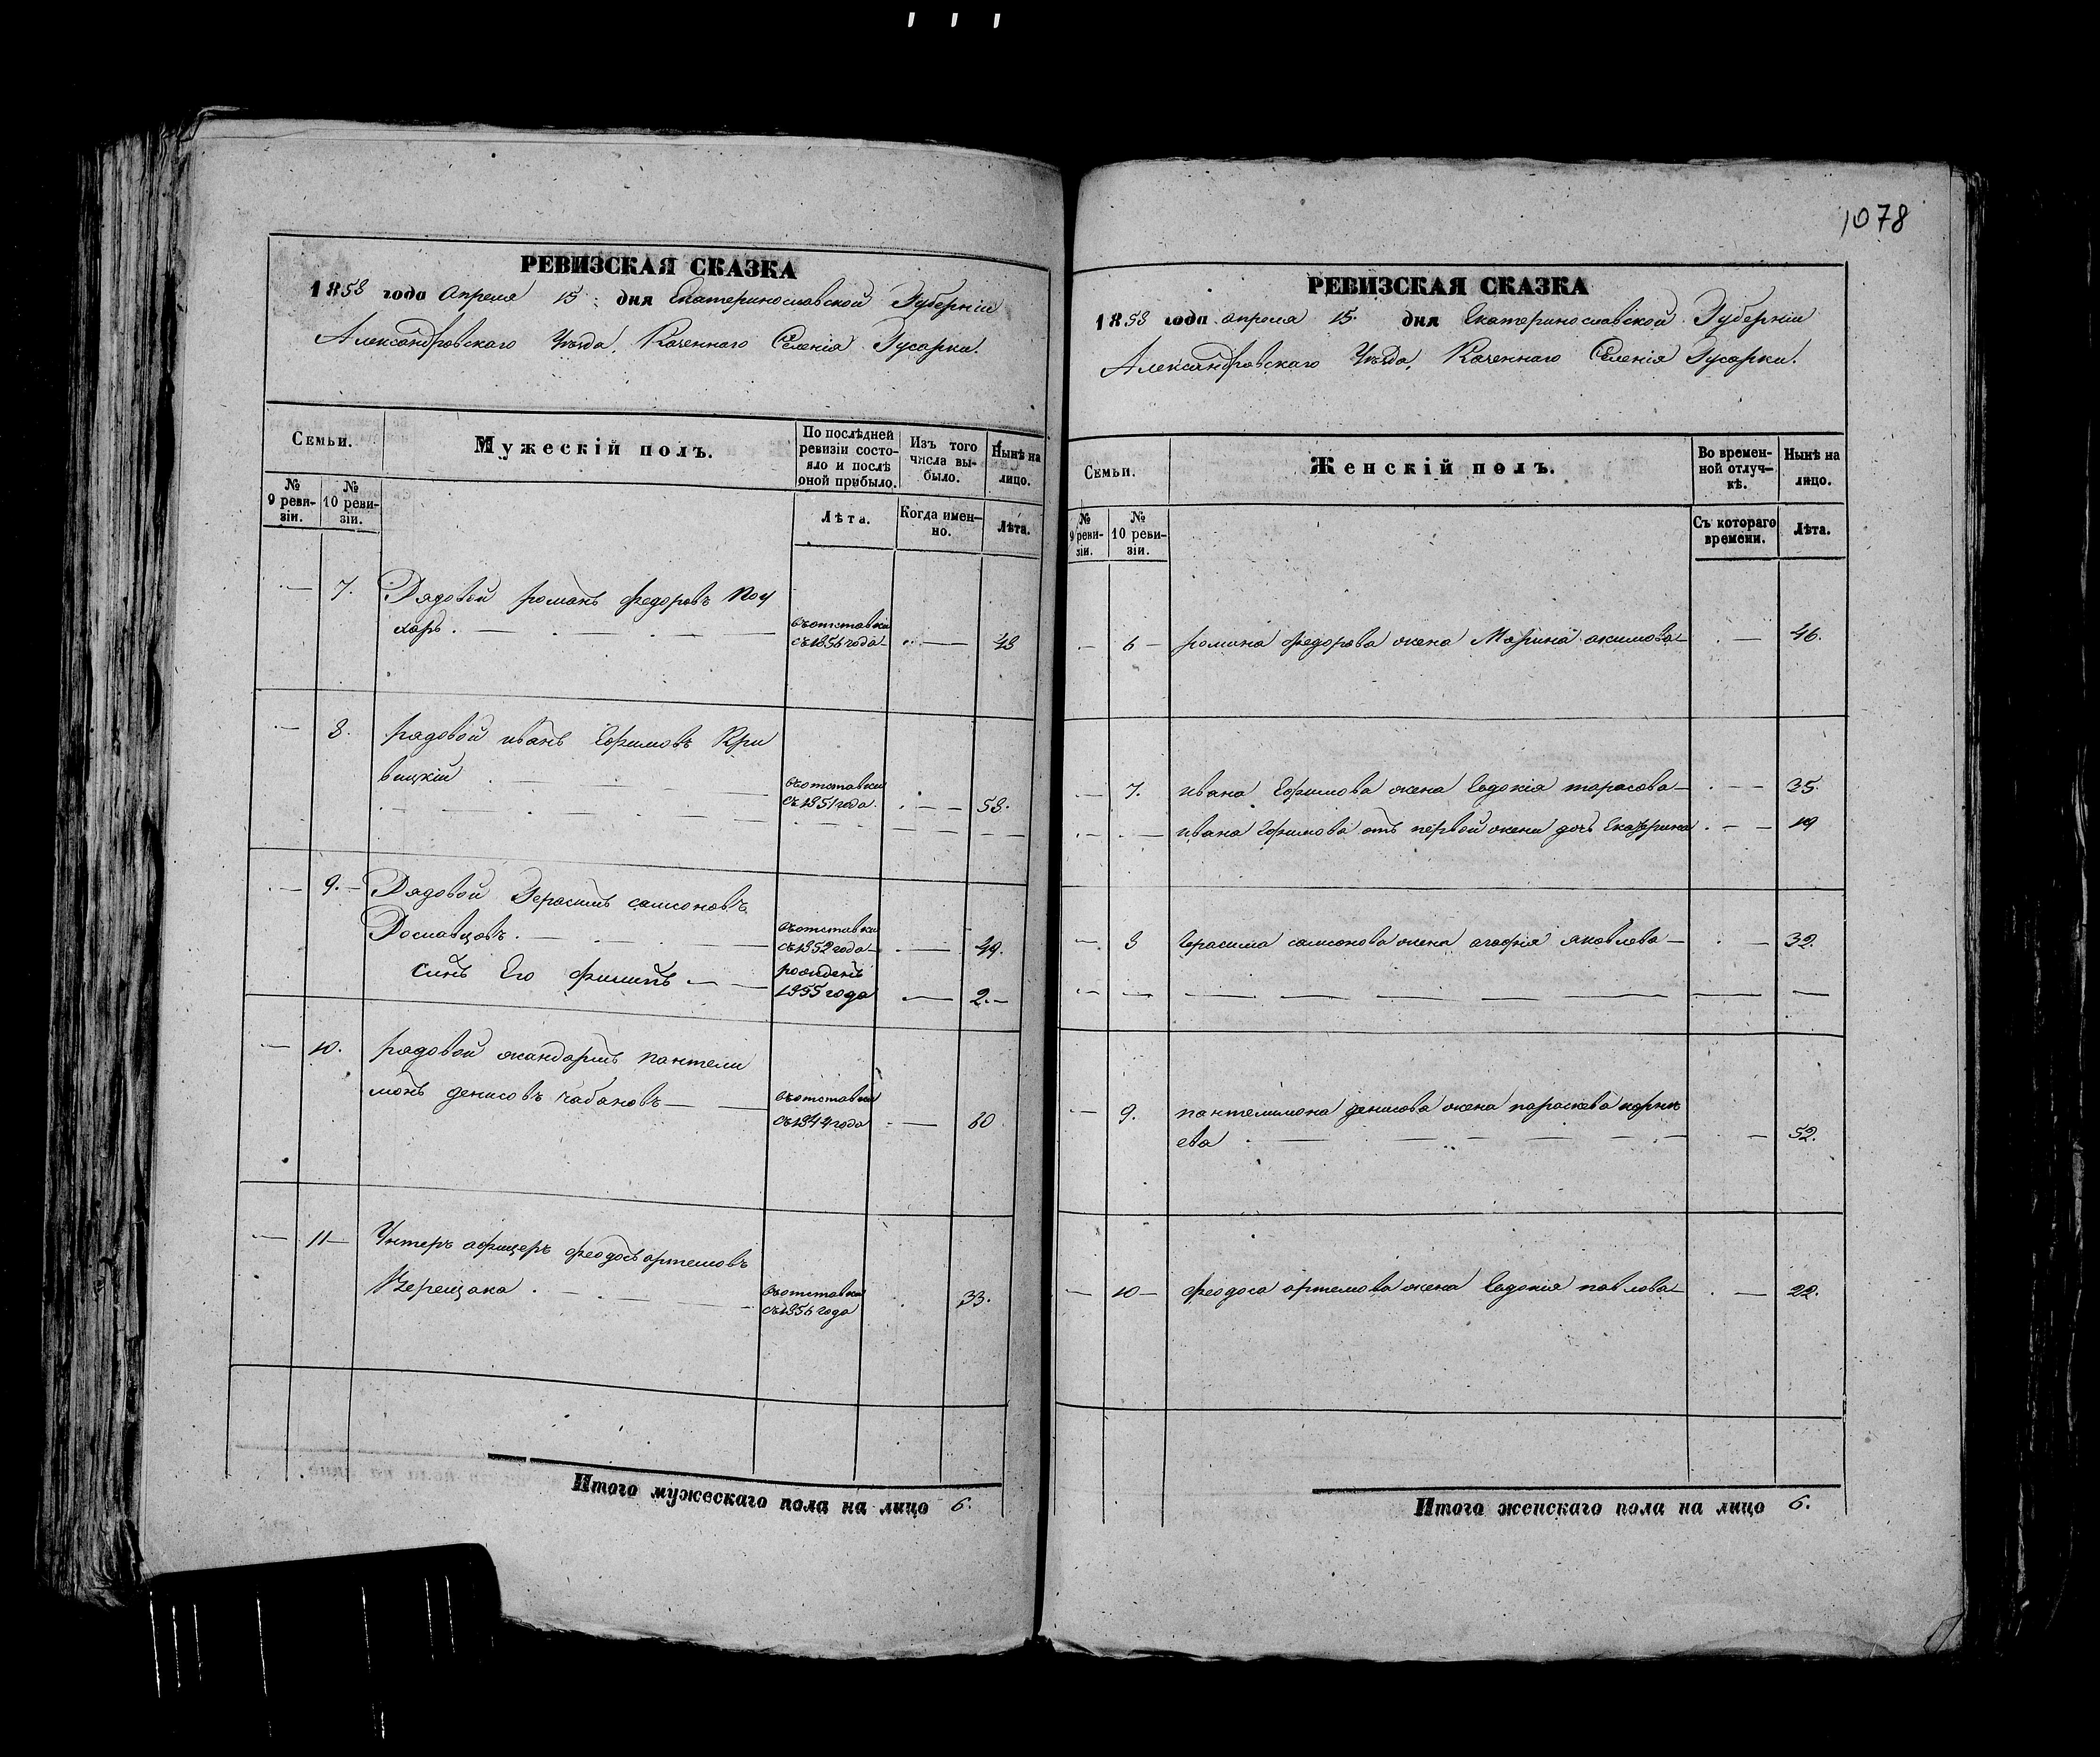 1078
РЕВИЗСКАЯ СКАЗКА
1858 года Апреля 15 дня Екатеринославской Губерніи
Александровскаго Уѣзда, Казеннаго Селенія Гусарки.
Семьи.
Мужескій полъ.
По послѣдней ревизіи состояло и послѣ оной прибыло.
Изъ того числа выбыло.
Нынѣ на лицо.
№ 9 ревизіи.
№ 10 ревизіи.
Лѣта.
Когда именно.
Лѣта.
— 7. Рядовой романъ федоровъ
харь. — въ отставки
съ 1856 года — 48
— 8. рядовой иванъ Ефимовъ Кри
вицкій въ отставки
съ 1851 года. — 58.
— 9. — Рядовой Герасимъ самсоновъ
въ отставки
съ 1852 года — 49.
синъ Его филипъ — рожденъ
1855 года — 2. —
— 10. рядовой жандармъ пантели
монъ денисовъ чабановъ — въ отставки
съ 1844 года — 60
— 11 — Унтеръ афицеръ феодосъ артемовъ
Верещака въ отставки
съ 1856 года 33.
Итого мужескаго пола на лицо 6.
РЕВИЗСКАЯ СКАЗКА
1858 года апреля 15. дня Екатеринославской Губерніи
Александровскаго Уѣзда, Казеннаго Селенія Гусарки.
Семьи.
Женскій полъ.
Во временной отлучкѣ.
Нынѣ на лицо.
№ 9 ревизіи.
№ 10 ревизіи.
Съ котораго времени.
Лѣта.
— 6 — романа федорова жена Марина акимова — 46.
— 7. ивана Ефимова жена Евдокія тарасова — 35.
— — ивана Ефимова отъ первой жени дочь Екатерина — 19
— 8 Герасима самсонова жена агафія яковлева — 32.
— 9. пантелимона денисова жена параскева корни
ева — 52.
— 10 — феодоса артемова жена Евдокія павлова — 22.
Итого женскаго пола на лицо 6.